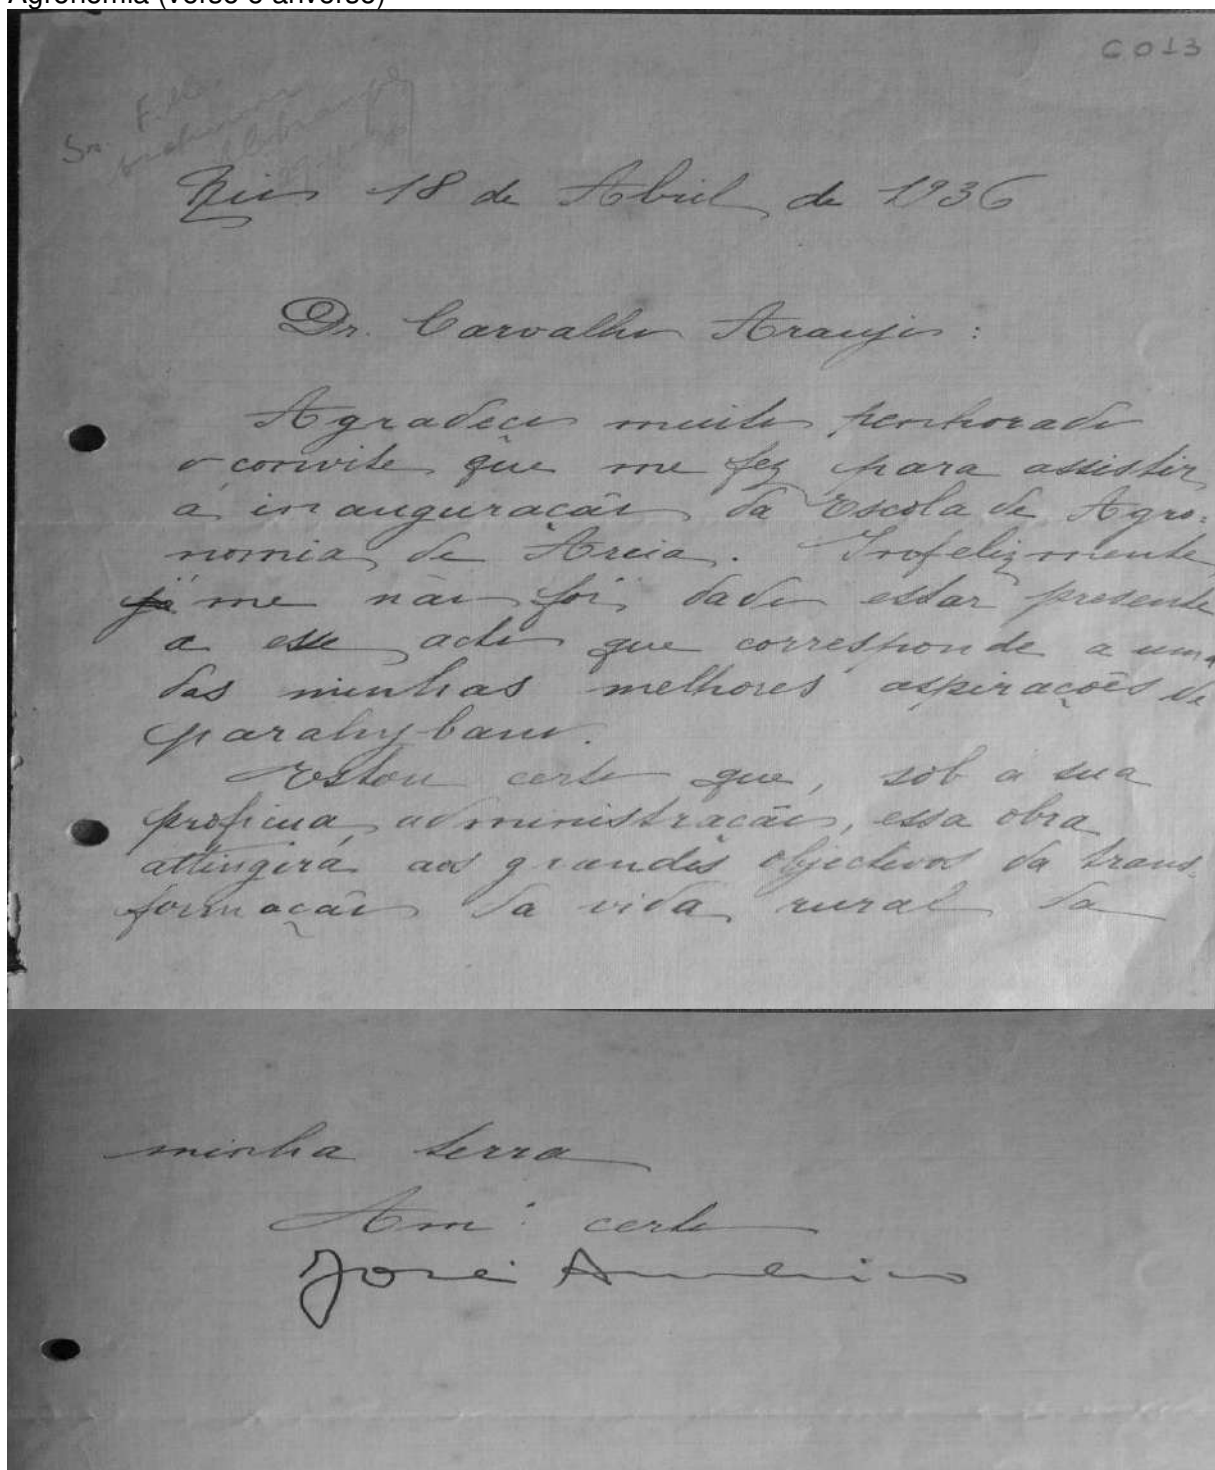 Agronomia (verso e anverso)
C013
Snr.
Rio 18 de Abril de 1936
Dr. Carvalho Araujo:
Agradeço muito penhorado
o convite que me fez para assistir
á inauguração da Escola de Agro-
nomia de Areia. Infelizmente,
já me não foi dado estar presente
a esse acto que corresponde a uma
das minhas melhores aspirações de
parahybano.
Estou certo que, sob a sua
proficua administração, essa obra
attingirá aos grandes objectivos da trans-
formação da vida rural da
minha terra
Amº. certo
José Americo